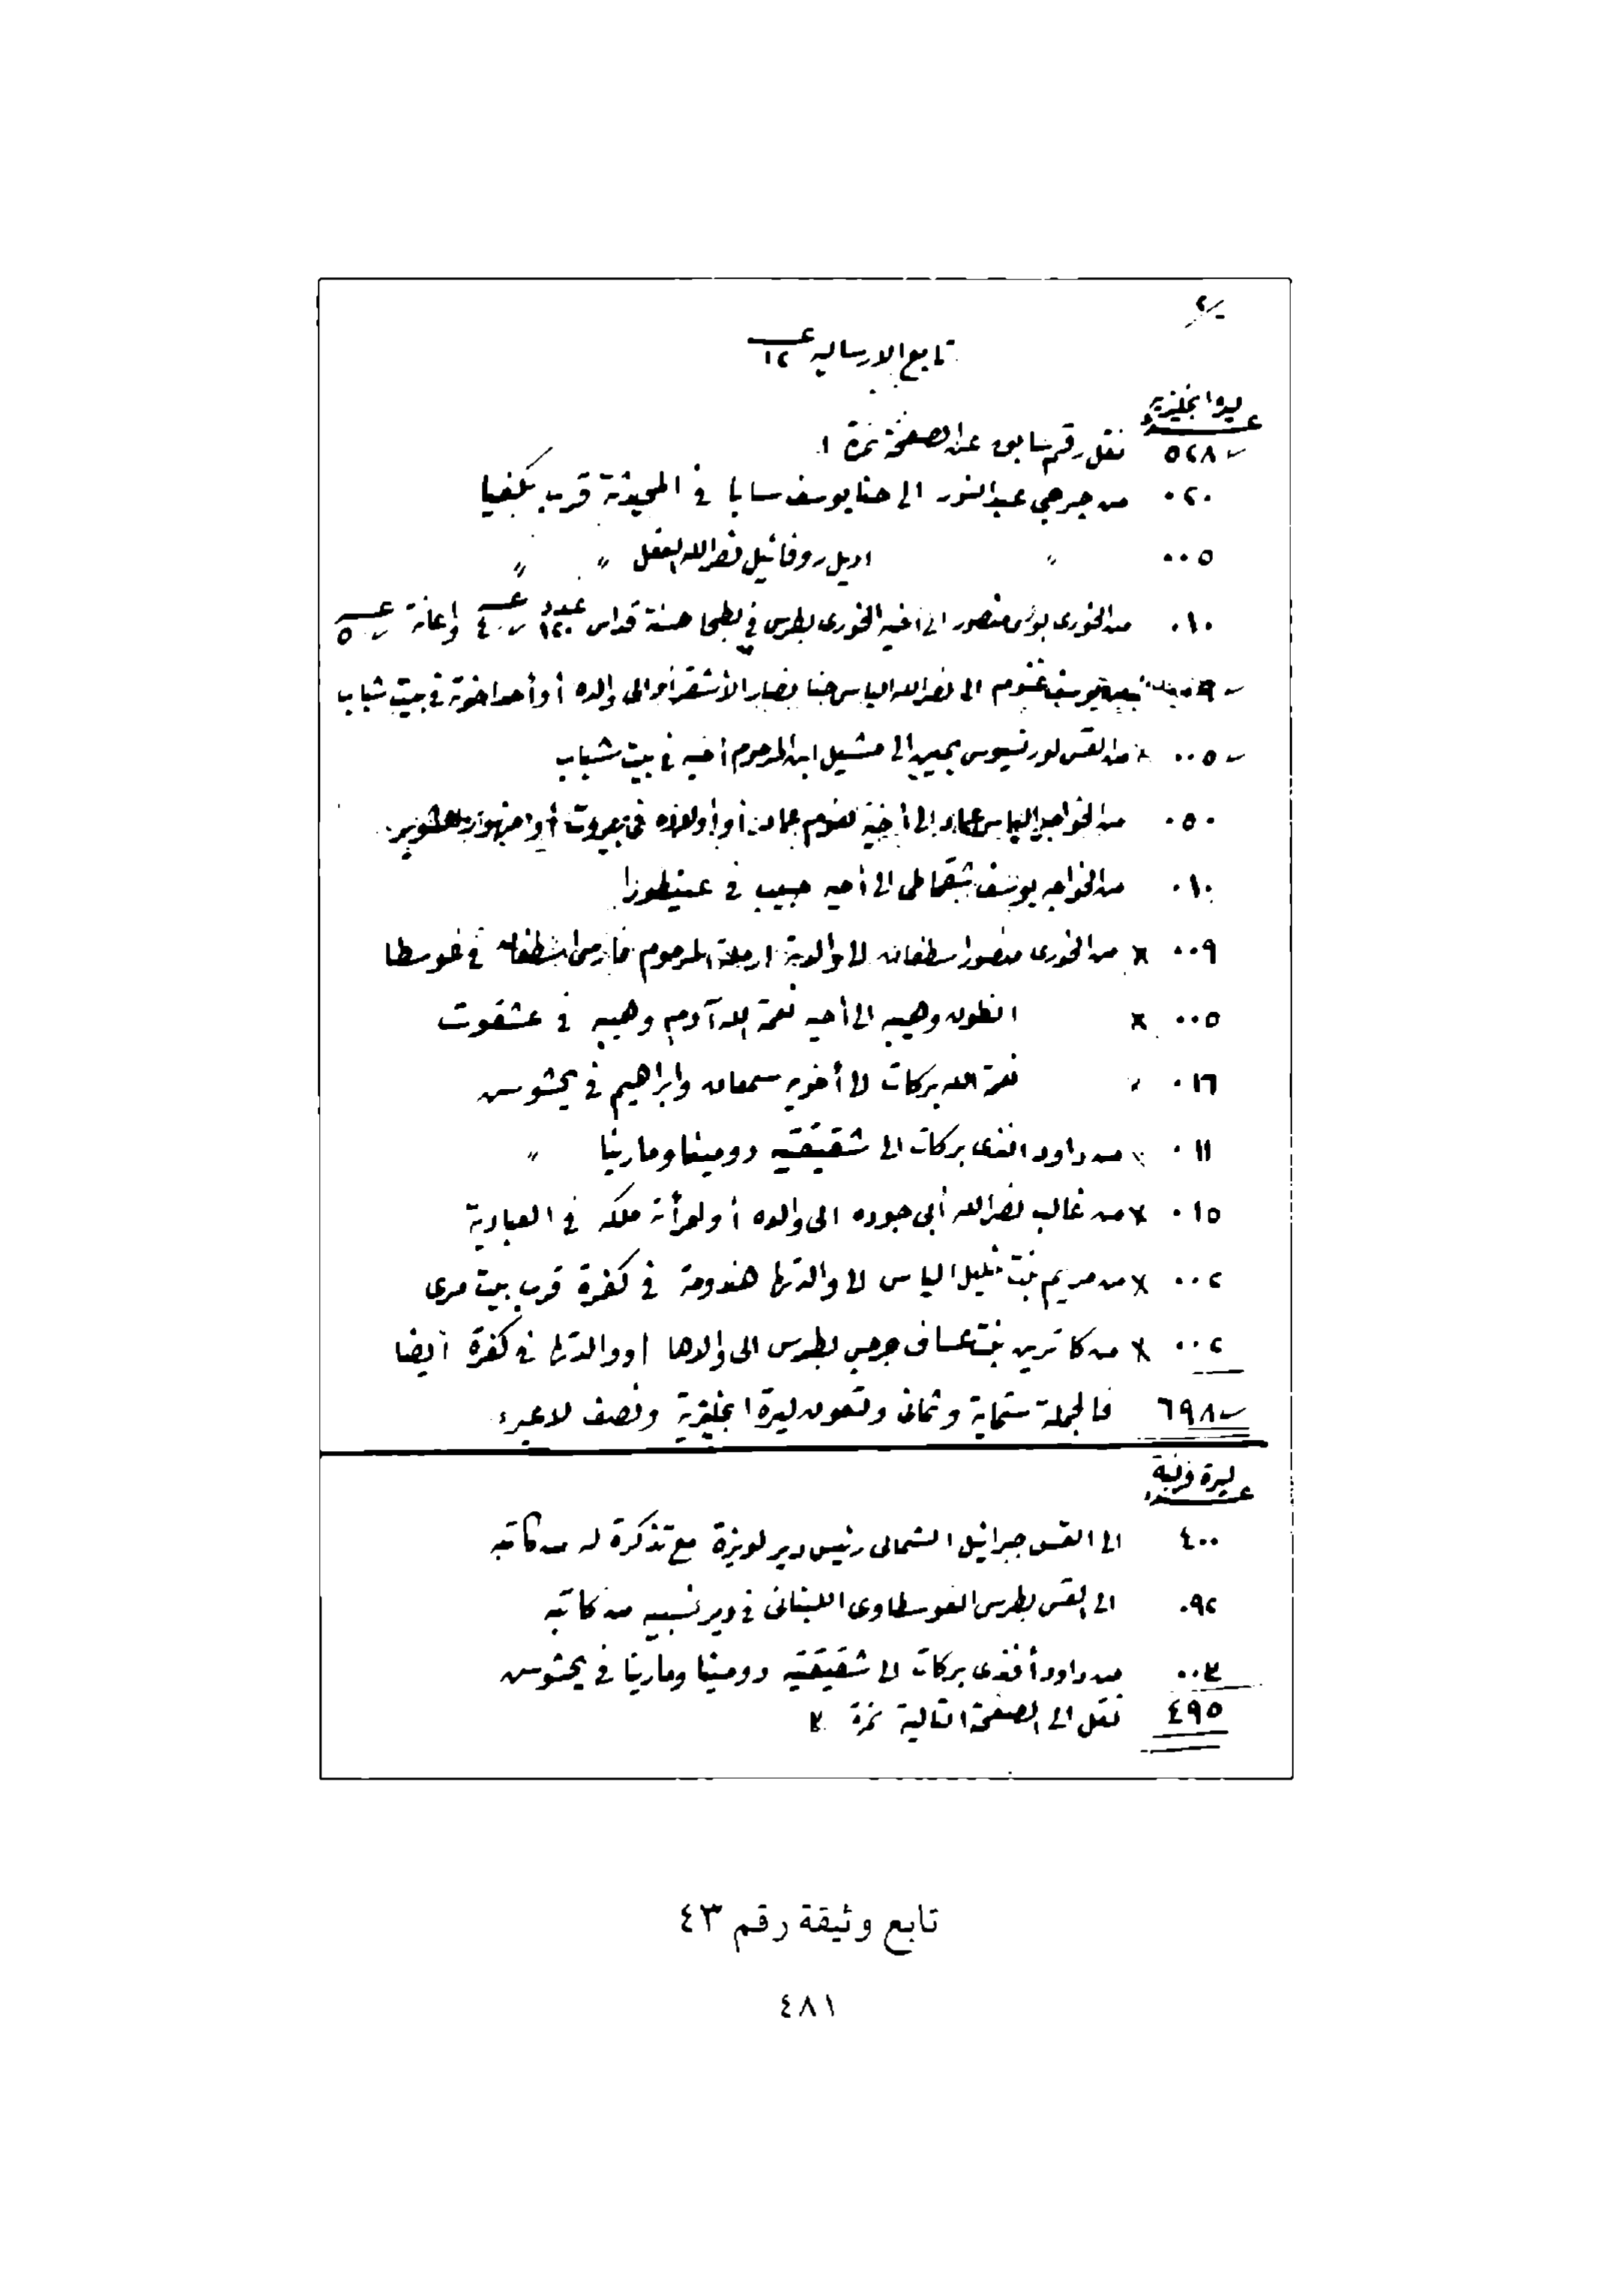 ٢
تابع الارسالية ١٢
ليرة انجليزية
٥٢٨ نقل رقم سابق عن الصفحة نمرة ١
٠٢٠ من جرجي عبد النور الى حنا يوسف سابا في المحيدثة قرب بكفيا
٠٠٥ " اديل روفائيل نصرالله العقل " "
٠١٠ من الخورى بولس منصور الى أخيه الخورى بطرس في بطحا حسنة قداس عدد ١٢٠ ٤ واعانة ٥
يوسف غنوم الى نصرالله الياس حنا نصار الأشقر أو الى والده أو أحد اخوته في بيت شباب
٠٠٥ من القس لورنسيوس يمين الى مشيل ابن المرحوم أخيه في بيت شباب
٠٥٠ من الخواجه الياس عماد الى أخيه نعوم عماد أو أولاده في بيروت أو
٠١٠ من الخواجه يوسف شقماطى الى أخيه حبيب في عينطورا
٠٠٩ × من الخورى منصور اسطفان الى والدته ارملة المرحوم فارس اسطفان في غوسطا
٠٠٥ × انطون وهيبه الى أخيه نعمة الله آدم وهيبه في عشقوت
٠١٦ " نعمة الله بركات الى أخويه سمعان وابراهيم في يحشوش
٠١١ × من داود افندى بركات الى شقيقتيه دومينا ومارينا "
٠١٥ × من غالب نصرالله أبى جوده الى والده أو امرأته ملكه في العبادية
٠٠٢ × من مريم بنت خليل الياس الى والدتها هندومة في كفرة قرب بيت مرى
٠٠٢ × من كاترين بنت عساف جرجس بطرس الى والدها او والدتها في كفرة أيضا
٦٩٨ فالجملة ستماية وثمانى وتسعون ليرة انجليزية ونصف لاغير
ليرة فرنسية
٤٠٠ الى القس جبرائيل الشمالى رئيس دير لويزة مع تذكرة له من كاتبه
٠٩٢ الى القس بطرس الغوسطاوى اللبنانى في دير نسبيه من كاتبه
٠٠٣ من داود أفندى بركات الى شقيقتيه دومينا ومارينا في يحشوش
٤٩٥ نقل الى الصفحة التالية نمرة ٣
تابع وثيقة رقم ٤٣
٤٨١